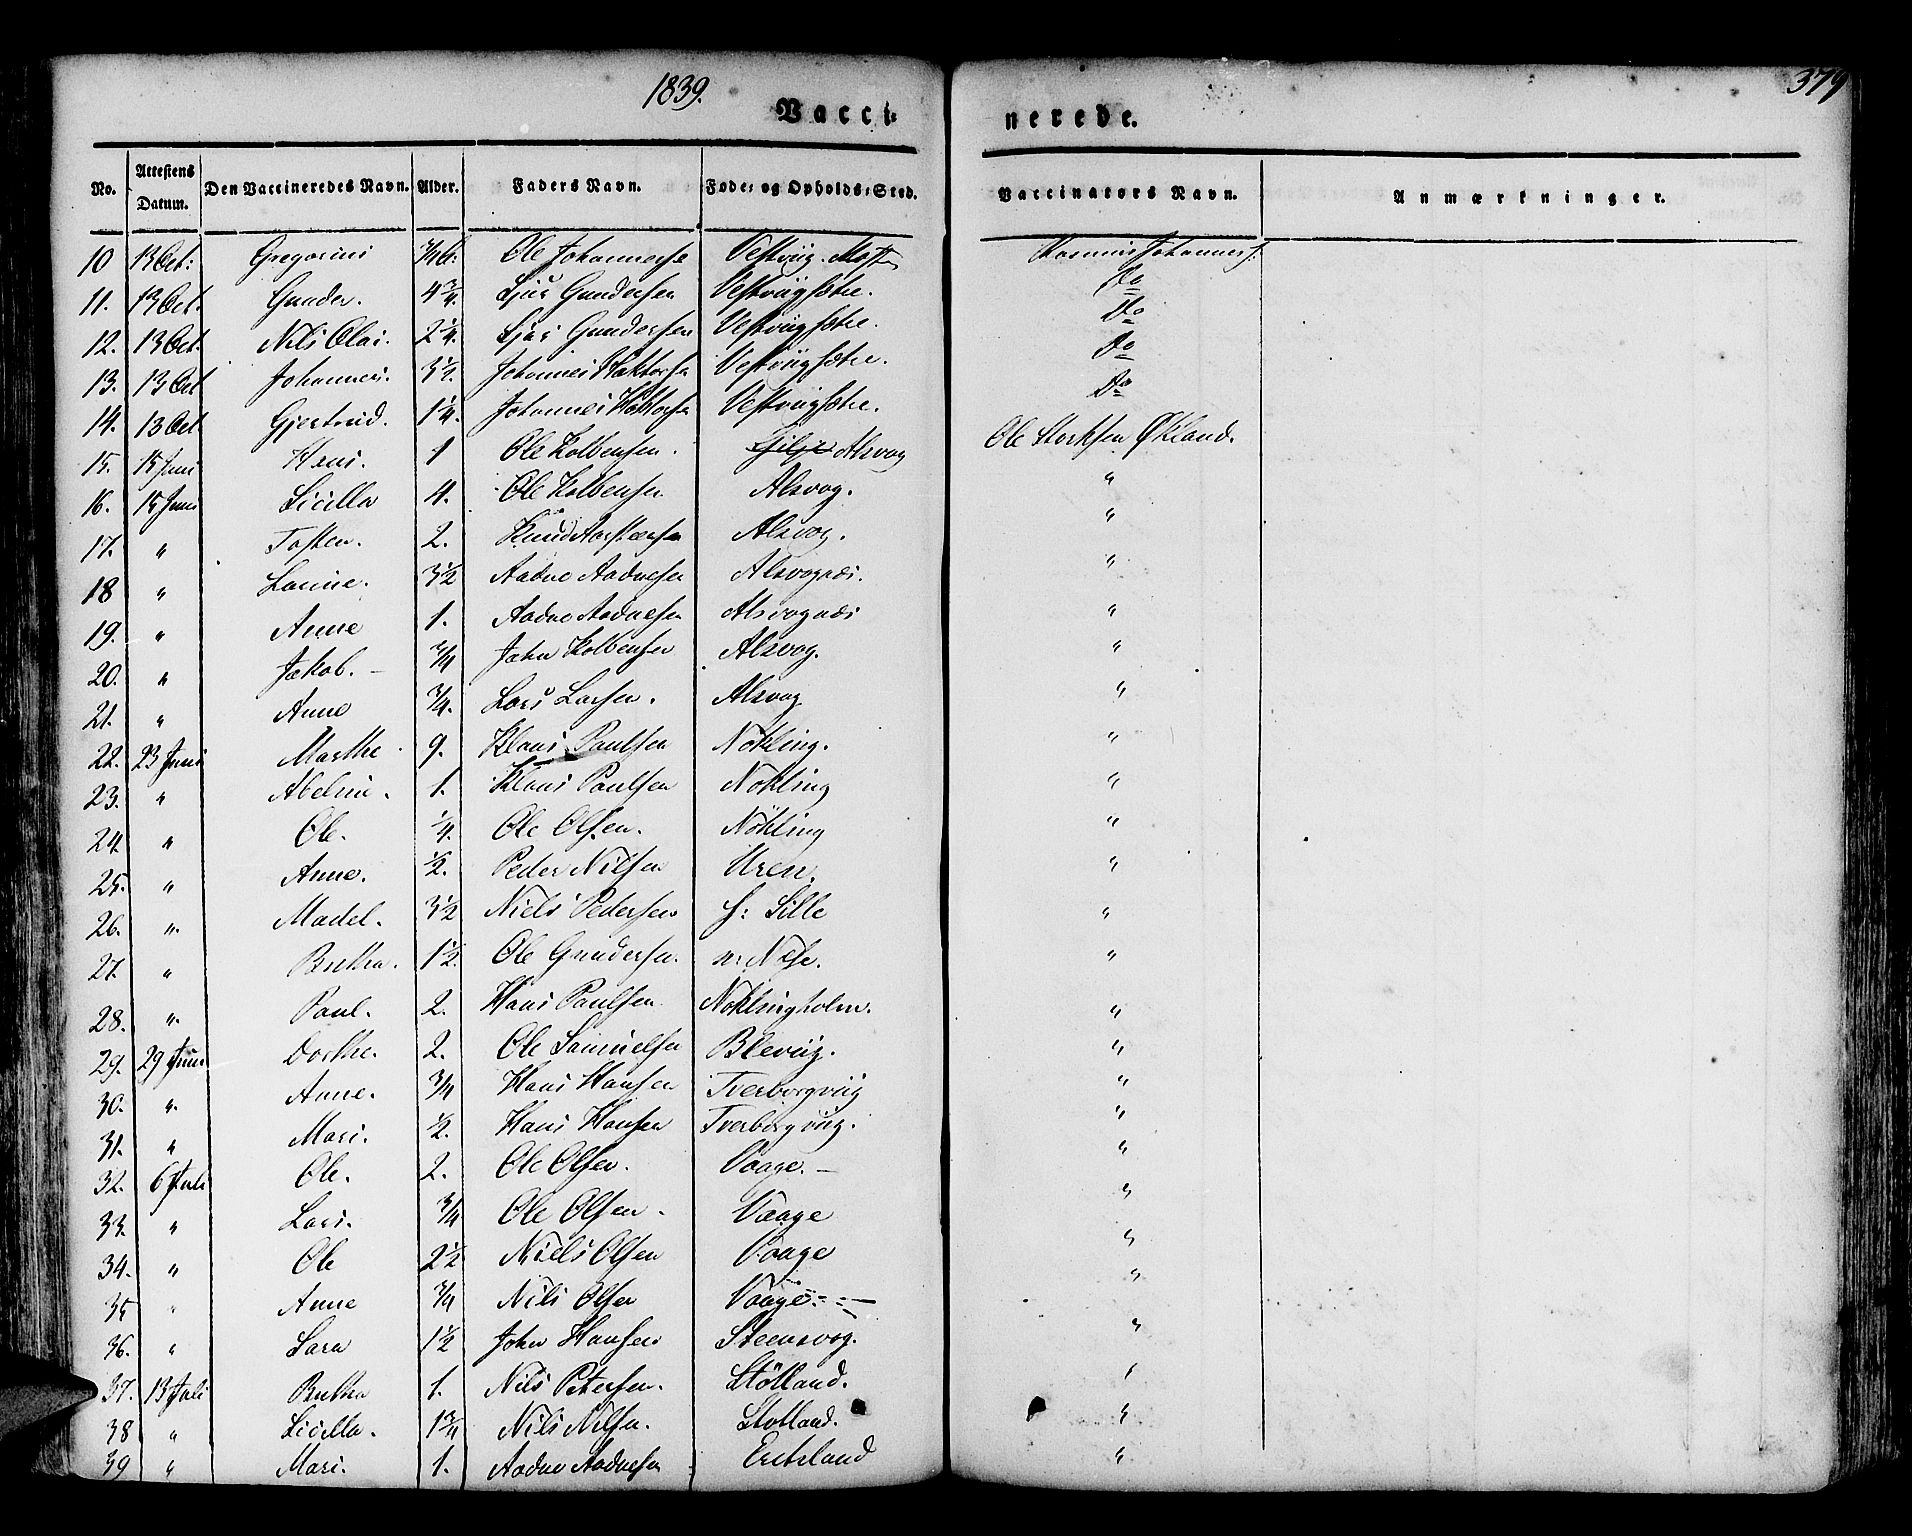 1839.
Vacci-
nerede.
379
No. Attestens Datum. Den Vaccineredes Navn. Alder. Faders Navn. Føde- og Opholds-Sted. Vaccinators Navn. Anmærkninger.
10 13 Oct: Gregorius Ole Johannesse Vestviig
11. 13 Oct. Gunder. 4 3/4. Sjur Gundersen Vestviigsætre. Do
12. 13 Oct. Nils Olai. 2 1/4. Sjur Gundersen Vestviigsætre. Do
13. 13 Oct Johannes. 3 1/2. Johannes Vestviigsætre. Do
14. 13 Oct. Gjertrud. 1 1/4. Johannes Vestviigsætre. Do
15. 15 Juni Hans. 1 Ole Kolbensen. Gilje Alsvog Ole Storksen Økland.
16. 15 Juni Sicilla 4. Ole Kolbensen Alsvog. "
17. " Tosten. 2. Knud Alsvog. "
18 " Lauine. 3 1/2 Aadne Aadnesen Alsvognæs. "
19. " Anne 1. Aadne Aadnesen Alsvognæs "
20. " Jakob. - 3/4 John Kolbensen Alsvog. "
21. " Anne 3/4. Lars Larsen. Alsvog "
22. 23 Juni Marthe 9. Klaus Paulsen Nøkling. "
23. " Abeline. 1. Klaus Paulsen Nøkling "
24. " Ole. 1/4. Ole Olsen. Nökling "
25. " Anne. 1/2. Peder Nilsen Uren. "
26. " Madel. 3 1/2 Niels Pedersen S: Sille "
27. " Britha. 1 1/2. Ole Gundersen. n: Nese. "
28. " Paul. 2. Hans Paulsen Nøklingholm. "
29. 29 Juni Dorthe. 2. Ole Samuelsen Bleviig. "
30. " Anne. 3/4 Hans Hansen Tverborgviig "
31. " Mari. 1/2. Hans Hansen Tverborgviig. "
32. 6 Juli Ole. 2. Ole Olsen. Vaage. - "
33. " Lars. 3/4 Ole Olsen. Vaage "
34. " Ole 2 1/2 Niels Olsen Vaage "
35 " Anne 3/4 Nils Olsen Vaage. "
36. " Sara 1 1/2 John Hansen Steensvog. "
37. 13 Juli Britha 1. Nils Petersen. Stölland. "
38 " Sicilla. 1 3/4 Nils Nilsen. Stölland. "
39 " Mari. 1. Aadne Aadnesen Eritsland "